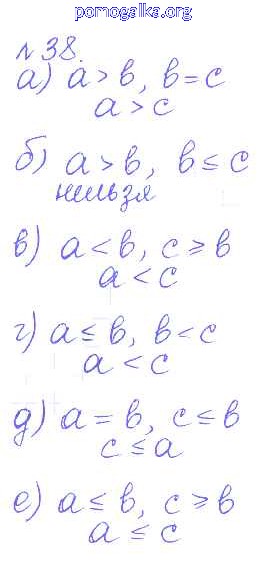 pomogalka.org
№38.
а) a > b, b = c
a > c
б) a > b, b ≤ c
нельзя
в) a < b, c ≥ b
a < c
г) a ≤ b, b < c
a < c
д) a = b, c ≤ b
c ≤ a
е) a ≤ b, c ≥ b
a ≤ c